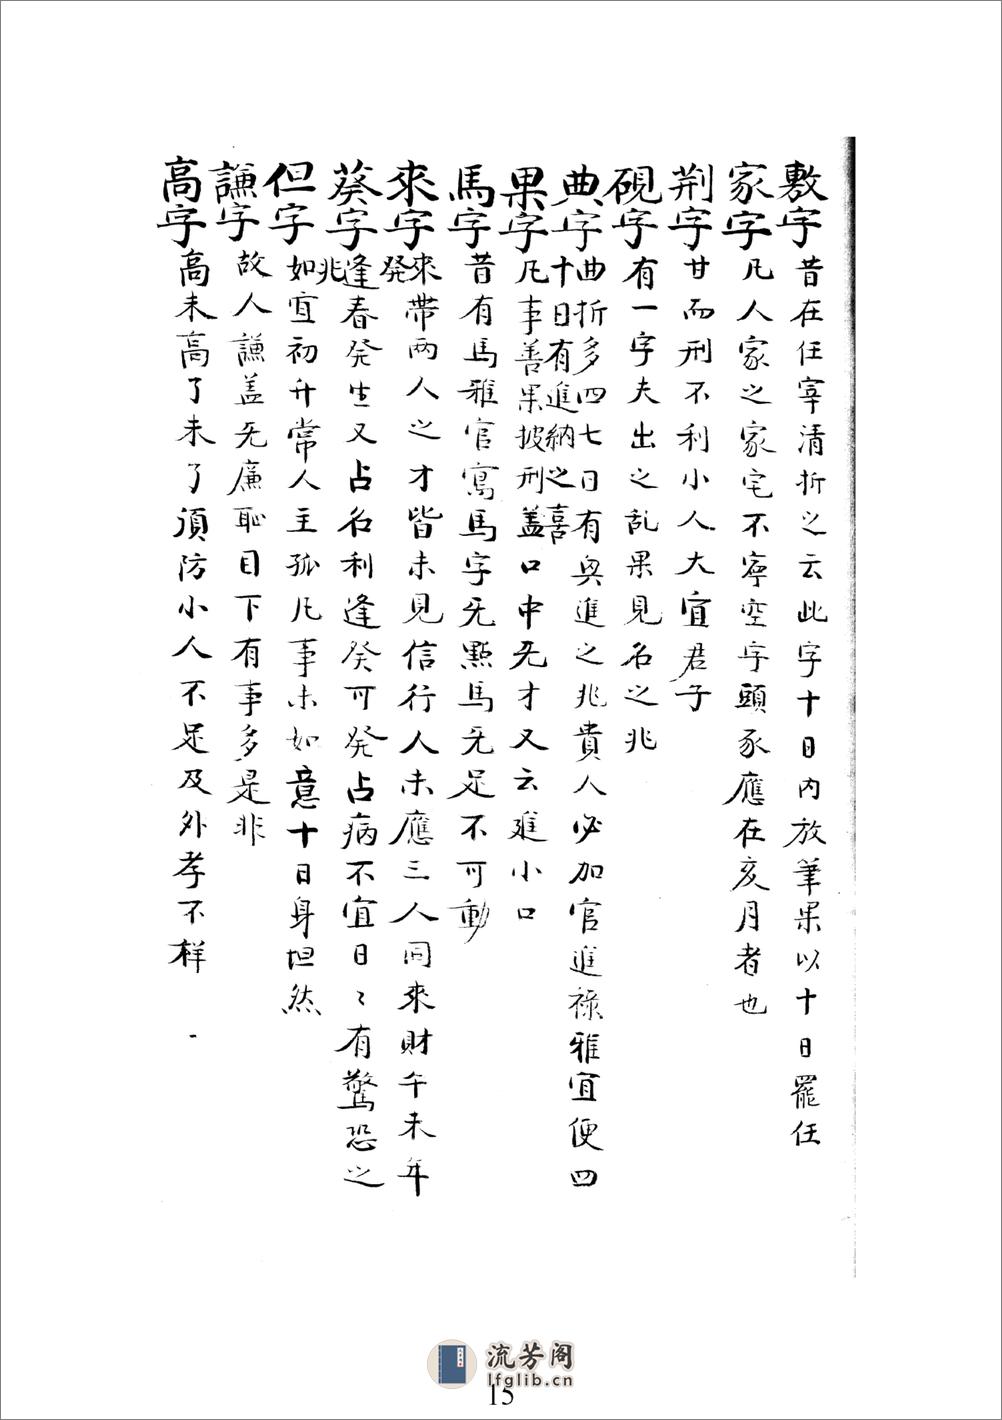 敷字昔在任宰清折之云此字十日内放筆果以十日罷任
家字凡人家之家宅不寧空字頭豕應在亥月者也
荆字甘而刑不利小人大宜君子
硯字有一字夫出之乱果見名之兆
典字曲折多四七日有與進之兆貴人必加官進祿雅宜便四
十日有進納之喜
果字凡事善果披刑蓋口中无才又云進小口
馬字昔有馬雅官寫馬字无點馬无足不可動
來字來帶兩人之才皆未見信行人未應三人同來財午未年
發
葵字逢春発生又占名利逢癸可発占病不宜日〻有驚恐之
兆
但字如宜初升常人主孤凡事未如意十日身坦然
謙字故人謙盖无廉恥目下有事多是非
高字高未高了未了須防小人不足及外孝不样
流芳阁
lfglib.cn
15